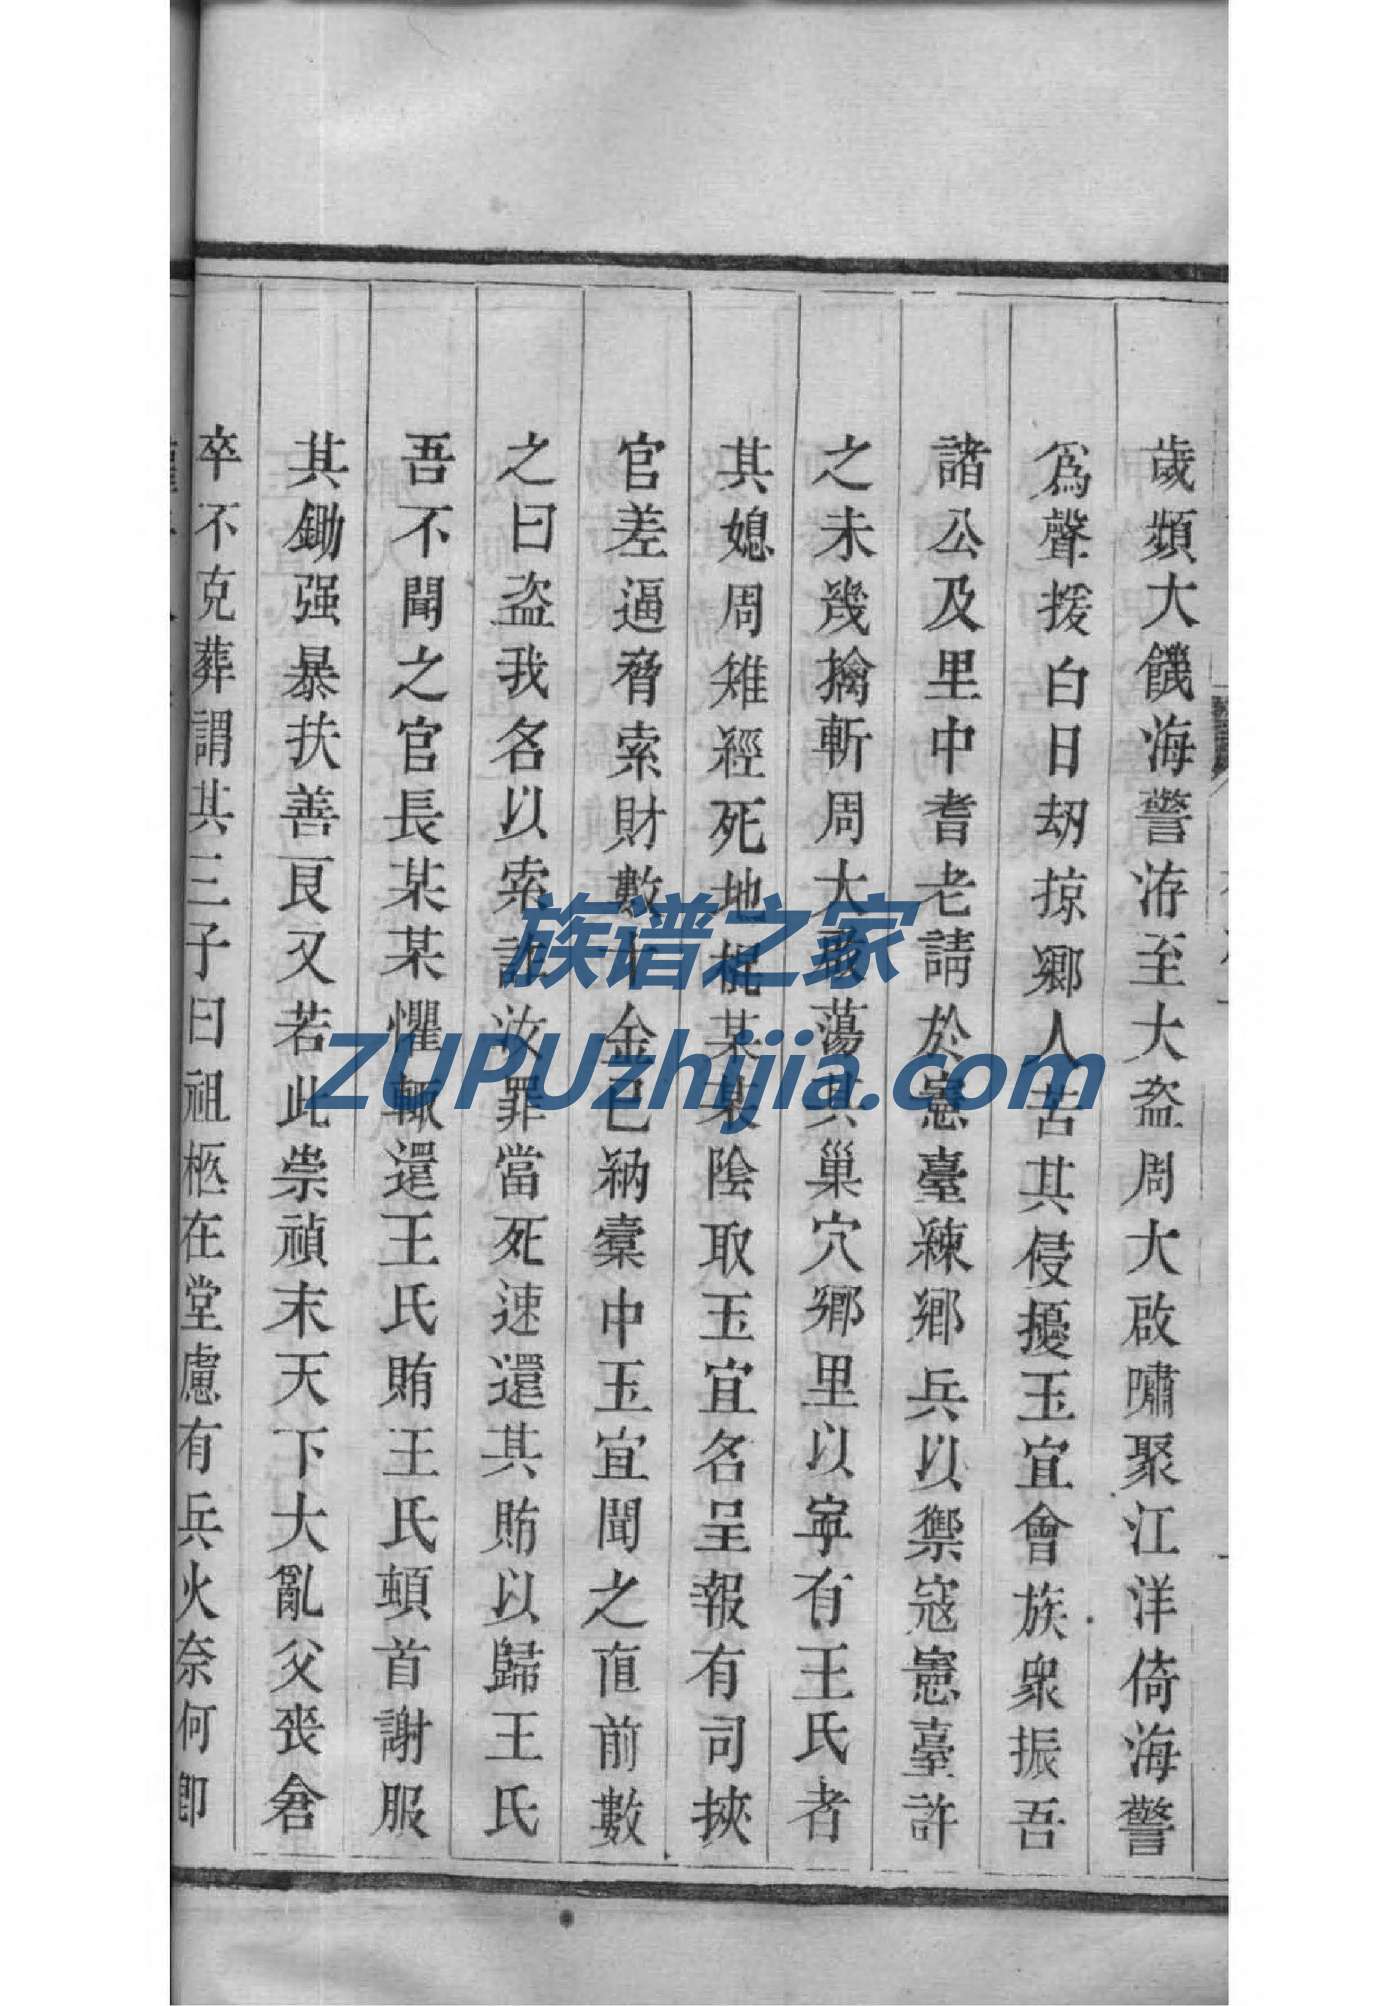 歲頻大饑海警洊至大盗周大啟嘯聚江洋倚海警
爲聲援白日刼掠鄉人苦其侵擾玉宜會族衆振吾
諸公及里中耆老請於憲臺練鄉兵以禦寇憲臺許
之未幾擒斬周大啟蕩其巢穴鄉里以寧有王氏者
其媳周雉經死地棍某某陰取玉宜名呈報有司挾
官差逼脅索財數十金已納橐中玉宜聞之直前數
之曰盗我名以索詐汝罪當死速還其賄以歸王氏
吾不聞之官長某某懼輒還王氏賄王氏頓首謝服
其鋤强暴扶善良又若此崇禎末天下大亂父喪倉
卒不克葬謂其三子曰祖柩在堂慮有兵火奈何卽
族谱之家
ZUPUzhijia.com